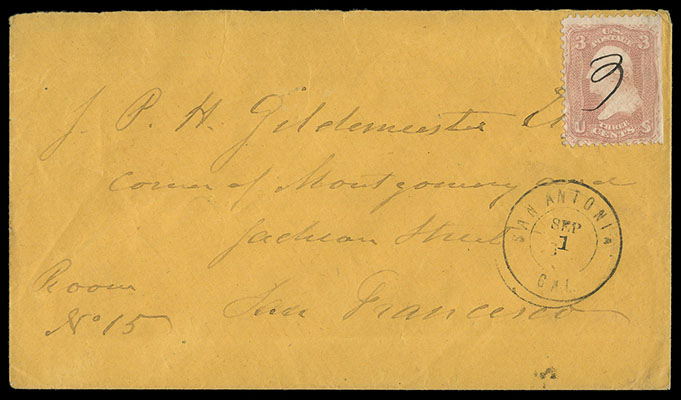 3 U.S. 3
POSTAGE
THREE
U CENTS S
J. P. H. Gildemeester
corner of Montgomery and
Jackson Street
San Francisco
Room
No 15
SAN ANTONIA
SEP
1
CAL